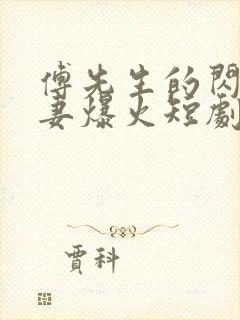 傅先生的閃
妻爆火短劇
賈科